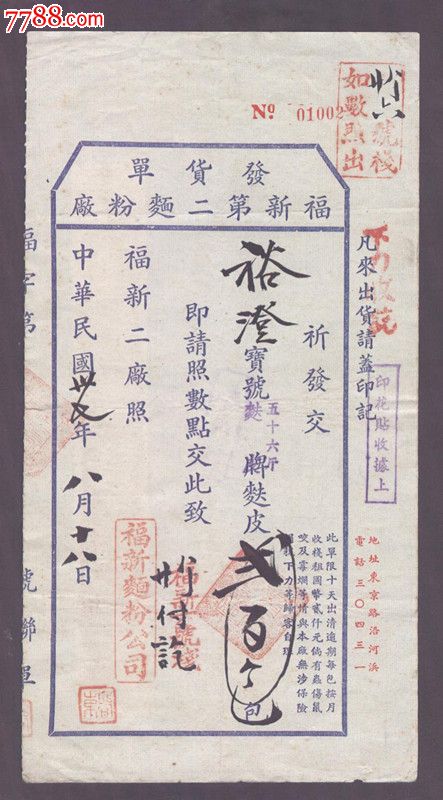 7788.com
中国收藏热线
№ 01002
如數照出
號棧
發貨單
福新第二麵粉廠
凡來出貨請蓋印記
印花貼收據上
地址東京路沿河浜
電話三〇四三一
祈發交
裕澄寶號
五十六斤
牌麩皮
弍百个包
此單限十天出清逾期每包按月
收棧租國幣貳仟元倘有蟲傷鼠
咬及霉爛等情與本廠無涉保險
下力等歸客自理
即請照數點交此致
付訖
福新二廠照
福新麵粉公司
中華民國卅七年八月十八日
福字第
號聯單